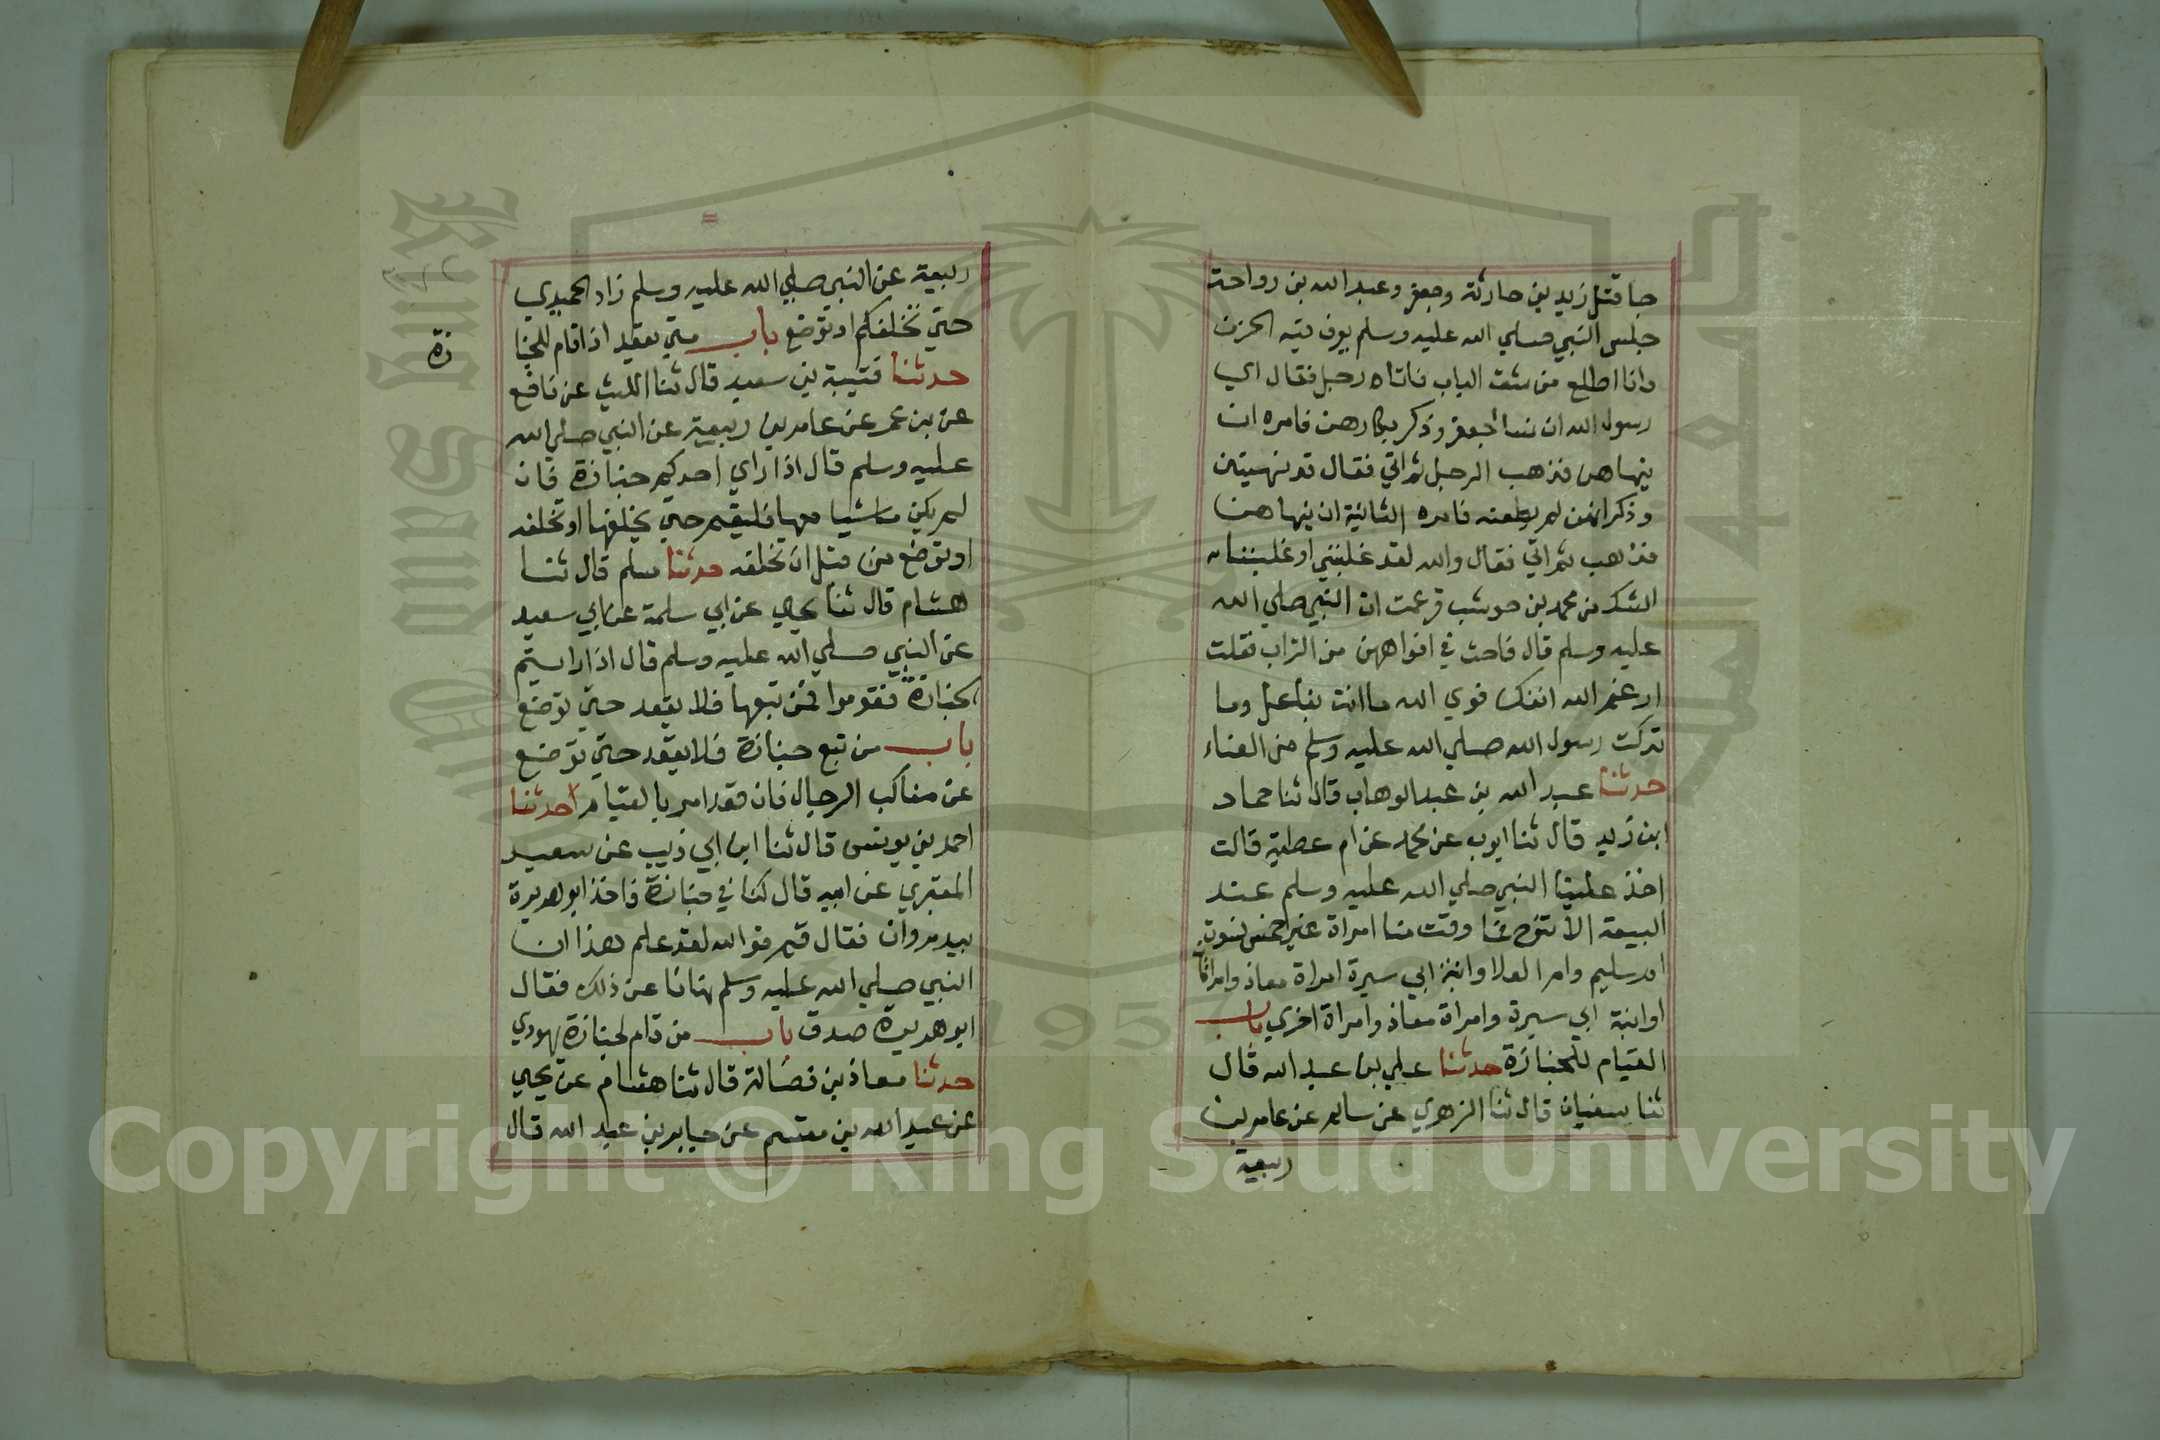 جا قتل زيد بن حارثة وجعفر وعبد الله بن رواحة
جلس النبي صلي الله عليه وسلم يعرف فيه الحزن
وانا اطلع من شق الباب فاتاه رجل فقال اي
رسول الله ان نسا جعفر وذكر بكاءهن فامره ان
ينهاهن فذهب الرجل ثم اتي فقال قد نهيتهن
وذكر انهن لم يطعنه فامره الثانية ان ينهاهن
فذهب ثم اتي فقال والله لقد غلبنني او غلبننا
الشك من محمد بن حوشب فزعمت ان النبي صلي الله
عليه وسلم قال فاحث في افواههن من التراب فقلت
ارغم الله انفك فوي الله ما انت بفاعل وما
تركت رسول الله صلي الله عليه وسلم من العناء
حدثنا عبد الله بن عبد الوهاب قال ثنا حماد
ابن زيد قال ثنا ايوب عن محمد عن ام عطية قالت
اخذ علينا النبي صلي الله عليه وسلم عند
البيعة الا ننوح فما وفت منا امراة غير خمس نسوة
ام سليم وام العلا وابنة ابي سبرة امراة معاذ وامراتان
او ابنة ابي سبرة وامراة معاذ وامراة اخري باب
القيام للجنازة حدثنا علي بن عبد الله قال
ثنا سفيان قال ثنا الزهري عن سالم عن عامر بن
ربيعة
ربيعة عن النبي صلي الله عليه وسلم زاد الحميدي
حتي تخلفكم او توضع باب متي يقعد اذا قام للجنا
زة
حدثنا قتيبة بن سعيد قال ثنا الليث عن نافع
عن بن عمر عن عامر بن ربيعة عن النبي صلي الله
عليه وسلم قال اذا راي احدكم جنازة فان
لم يكن ماشيا معها فليقم حتي يخلفها او تخلفه
او توضع من قبل ان تخلفه حدثنا مسلم قال ثنا
هشام قال ثنا يحيي عن ابي سلمة عن ابي سعيد
عن النبي صلي الله عليه وسلم قال اذا رايتم
الجنازة فقوموا فمن تبعها فلا يقعد حتي توضع
باب من تبع جنازة فلا يقعد حتي توضع
عن مناكب الرجال فان قعد امر بالقيام حدثنا
احمد بن يونس قال ثنا ابن ابي ذيب عن سعيد
المقبري عن ابيه قال كنا في جنازة فاخذ ابو هريرة
بيد مروان فقال قم فو الله لقد علم هذا ان
النبي صلي الله عليه وسلم نهانا عن ذلك فقال
ابو هريرة صدق باب من قام لجنازة يهودي
حدثنا معاذ بن فضالة قال ثنا هشام عن يحيي
عن عبيد الله بن مقسم عن جابر بن عبد الله قال
King Saud University
1957
Copyright © King Saud University